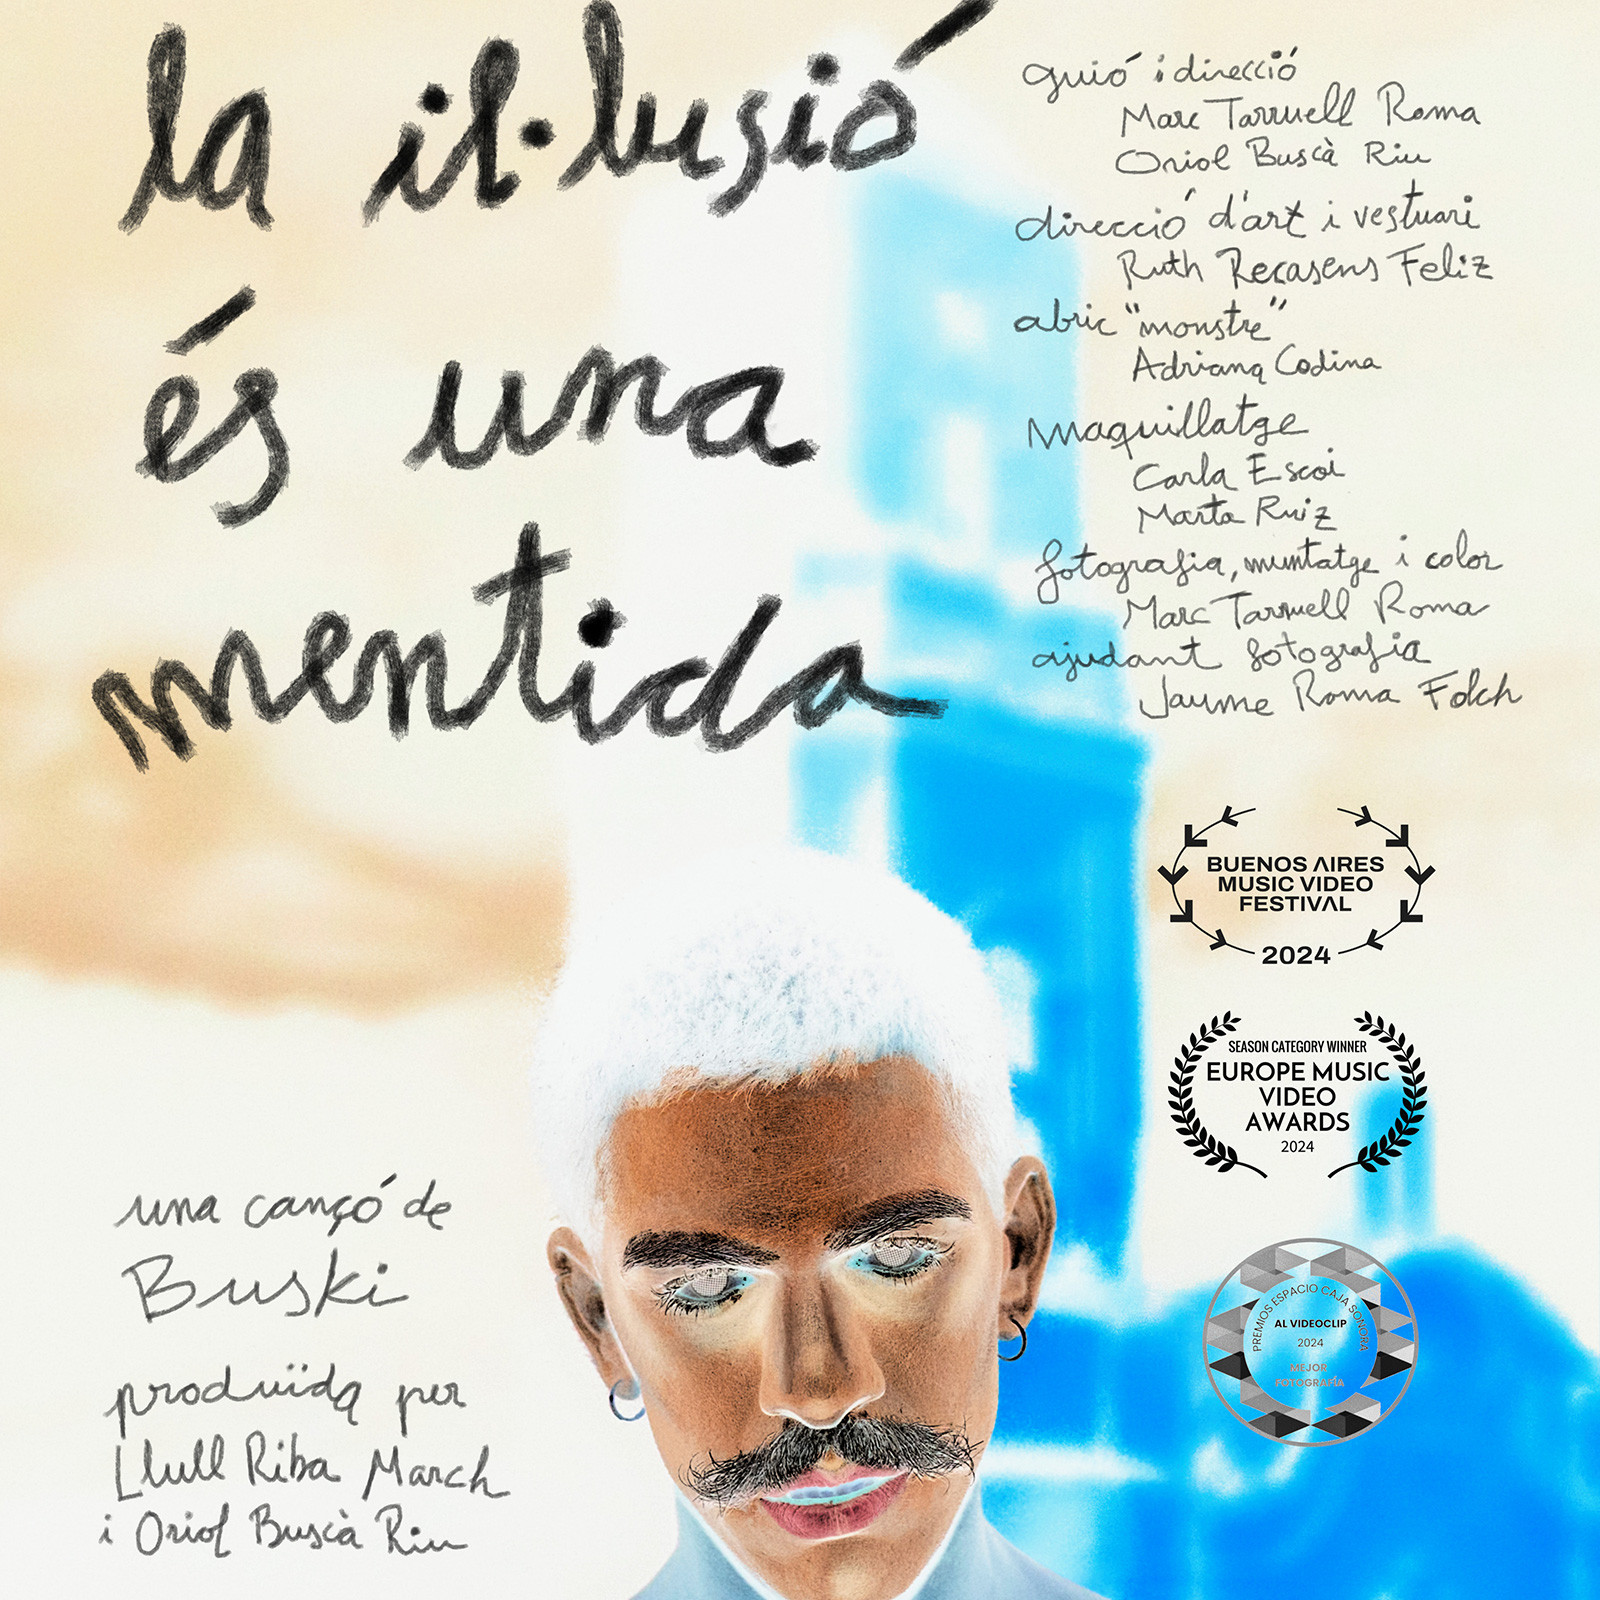 la il·lusió
és una
mentida
guió i direcció
Marc Tarruell Roma
Oriol Buscà Riu
direcció d'art i vestuari
Ruth Recasens Feliz
abric "monstre"
Adriana Codina
maquillatge
Carla Escoi
Marta Ruiz
fotografia, muntatge i color
Marc Tarruell Roma
ajudant fotografia
Jaume Roma Folch
BUENOS AIRES
MUSIC VIDEO
FESTIVAL
2024
SEASON CATEGORY WINNER
EUROPE MUSIC
VIDEO
AWARDS
2024
PREMIOS ESPACIO CAJA SONORA
AL VIDEOCLIP
2024
MEJOR
FOTOGRAFÍA
una cançó de
Buski
produïda per
Llull Riba March
i Oriol Buscà Riu